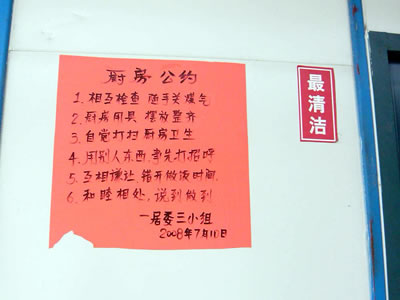 厨房公约
1. 相互检查 随手关煤气
2. 厨房用具 摆放整齐
3. 自觉打扫厨房卫生
4. 用别人东西,事先打招呼
5. 互相谦让,错开做饭时间.
6. 和睦相处,说到做到
一居委三小组
2008年7月10日
最清洁